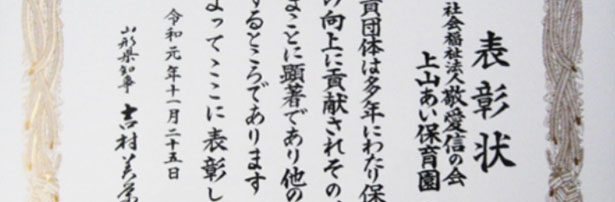 表彰状
社会福祉法人敬愛信の会
上山あい保育園
貴団体は多年にわたり保
向上に貢献されその
まことに顕著であり他の
するところであります
よってここに表彰し
令和元年十一月二十五日
山形県知事 吉村美栄